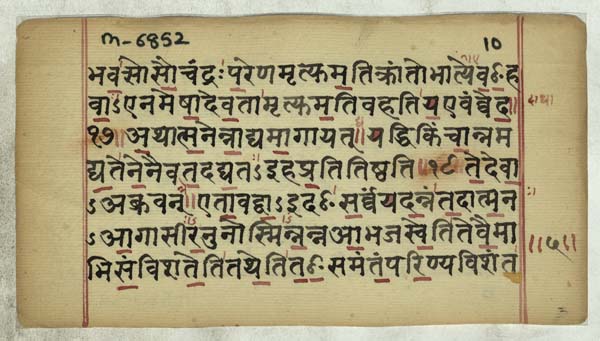 m-6852 10
भवत्सोसौ चंद्रः परेण मृत्युमतिक्रांतो भात्येवꣳ ह
वाऽएनमेषा देवता मृत्युमतिवहति य एवं व्वेद॥
१७॥ अथात्मनेन्नाद्यमागायत्॥ यद्धि किंचान्नम
द्यतेनेनैव तदद्यतऽइह प्रतितिष्ठति॥१८ ते देवा
ऽअब्रुवन्॥ एतावद्वाऽइदꣳ सर्व्वं यदन्नं तदात्मन
ऽआगासीरनुनोस्मिन्नन्नऽआभजस्वेति ते वै मा
भिसंविशतेति तथेति तꣳ समंतं परिण्यविशंत
॥५॥